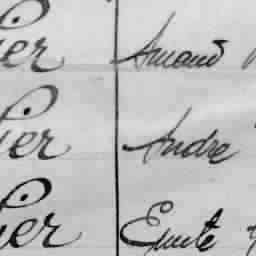 ier Amand
ier Andre
ier Emile